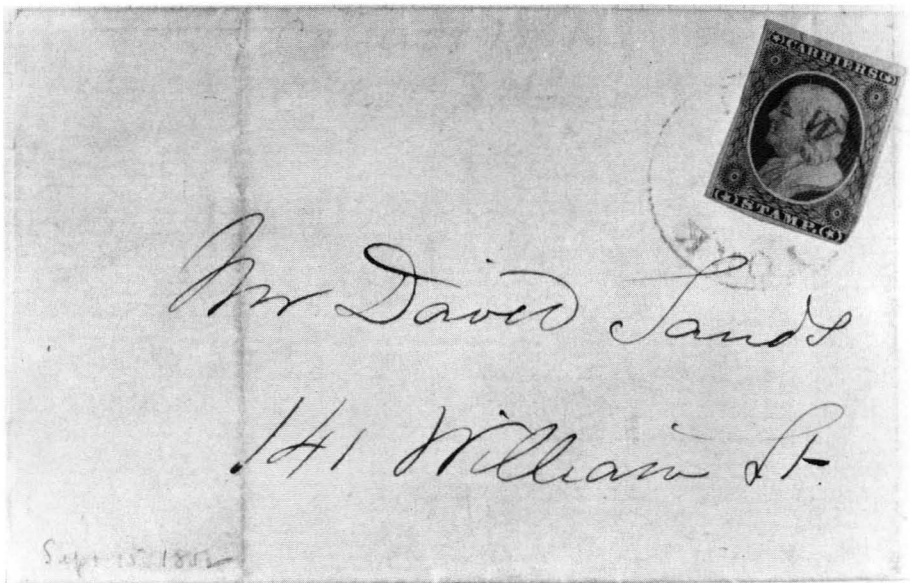 CARRIERS
STAMP.
Mr David Sands
141 William St.
Sept 15